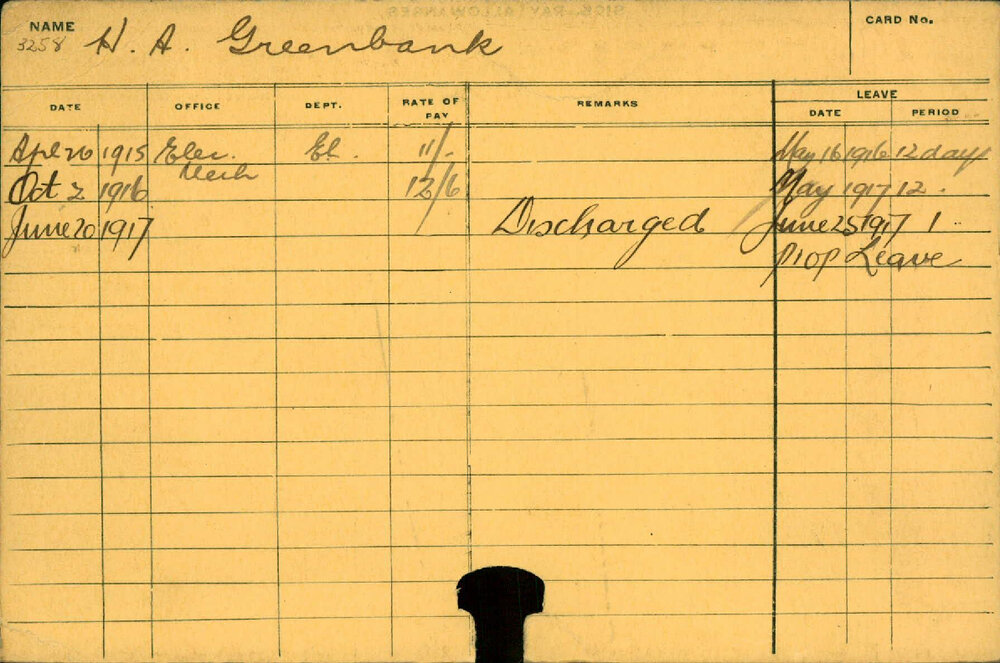 SICK PAY ALLOWANCES
NAME
CARD No.
3258 H. A. Greenbank
LEAVE
DATE OFFICE DEPT. RATE OF PAY REMARKS DATE PERIOD
Apl 20 1915 Elec. El. 11/- May 16 1916 12 days
Mech
Oct 2 1916 12/6 May 1917 12.
June 20 1917 Discharged June 25 1917 1
Prop Leave